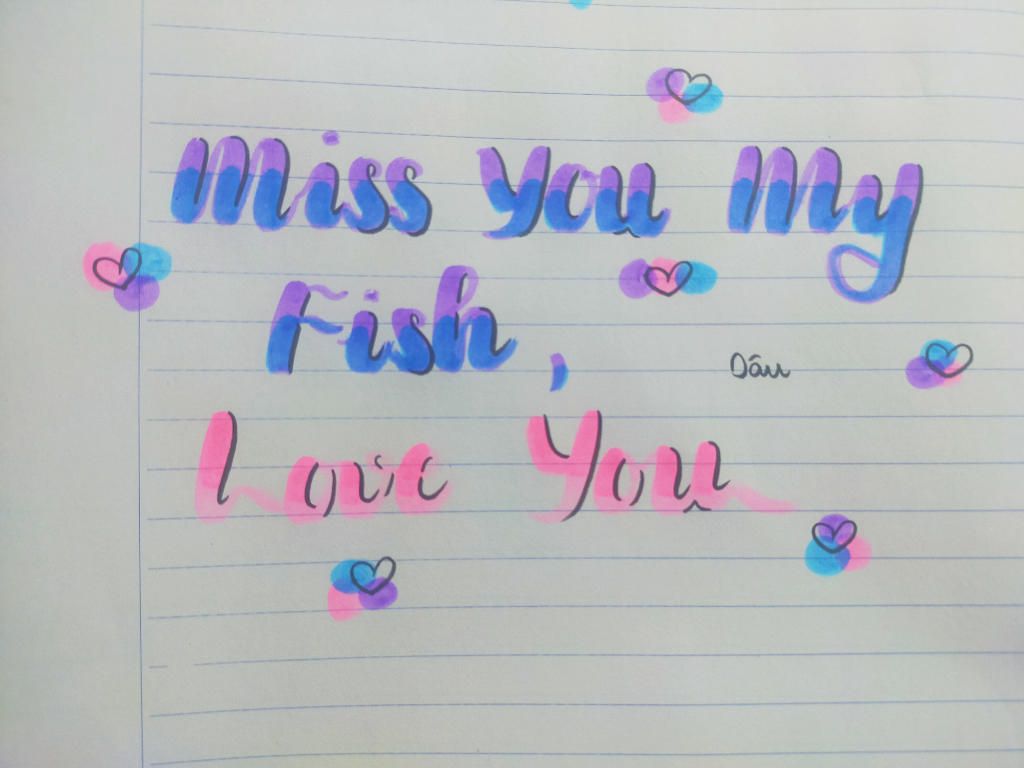 Miss You My
Fish,
Dâu
Love You